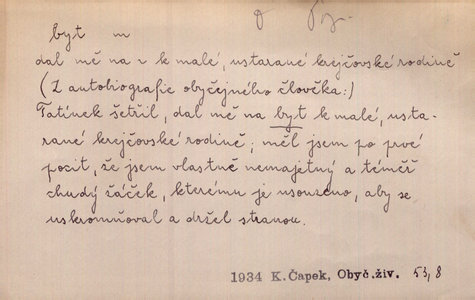 byt m
dal mě na v k malé, ustarané krejčovské rodině
(Z autobiografie obyčejného člověka:)
Tatínek šetřil, dal mě na byt k malé, usta-
rané krejčovské rodině; měl jsem po prvé
pocit, že jsem vlastně nemajetný a téměř
chudý žáček, kterému je usouzeno, aby se
uskromňoval a držel stranou.
1934 K. Čapek, Obyč.živ. 53,8